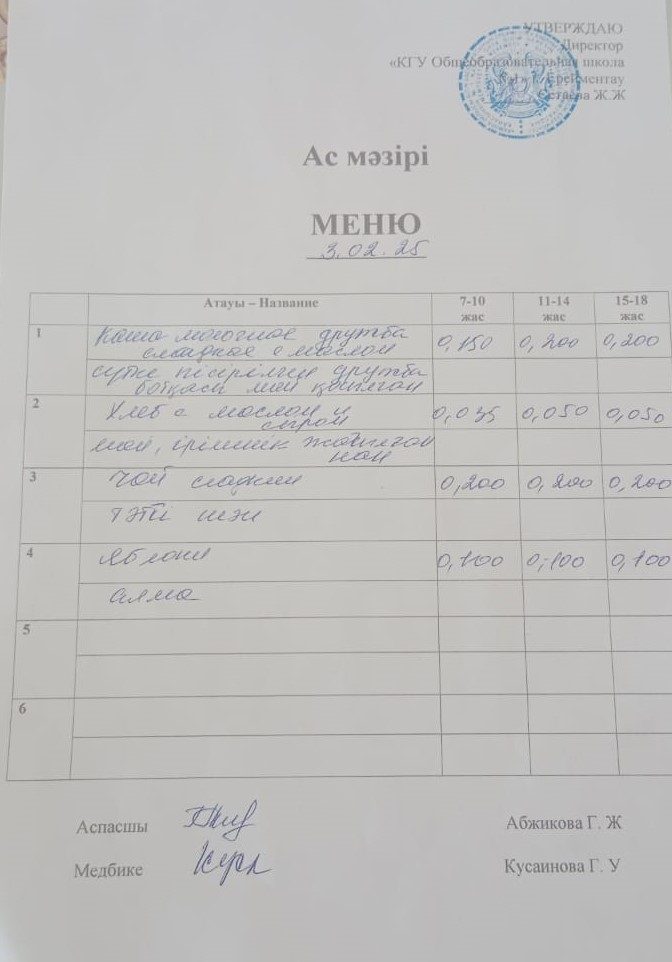 УТВЕРЖДАЮ
Директор
«КГУ Общеобразовательная школа
Ерейментау
Ж.Ж
Ас мәзірі
МЕНЮ
3.02.25
Атауы – Название 7-10 жас 11-14 жас 15-18 жас
1 Каша молочная дружба 0,150 0,200 0,200
сладкая с маслом
сүтке пісірілген дружба
ботқасы май қосылған
2 Хлеб с маслом и 0,035 0,050 0,050
сыром
май, ірімшік жағылған
нан
3 Чай сладкий 0,200 0,200 0,200
тәтті шай
4 Яблоки 0,100 0,100 0,100
алма
5
6
Аспасшы Абжикова Г. Ж
Медбике Кусаинова Г. У